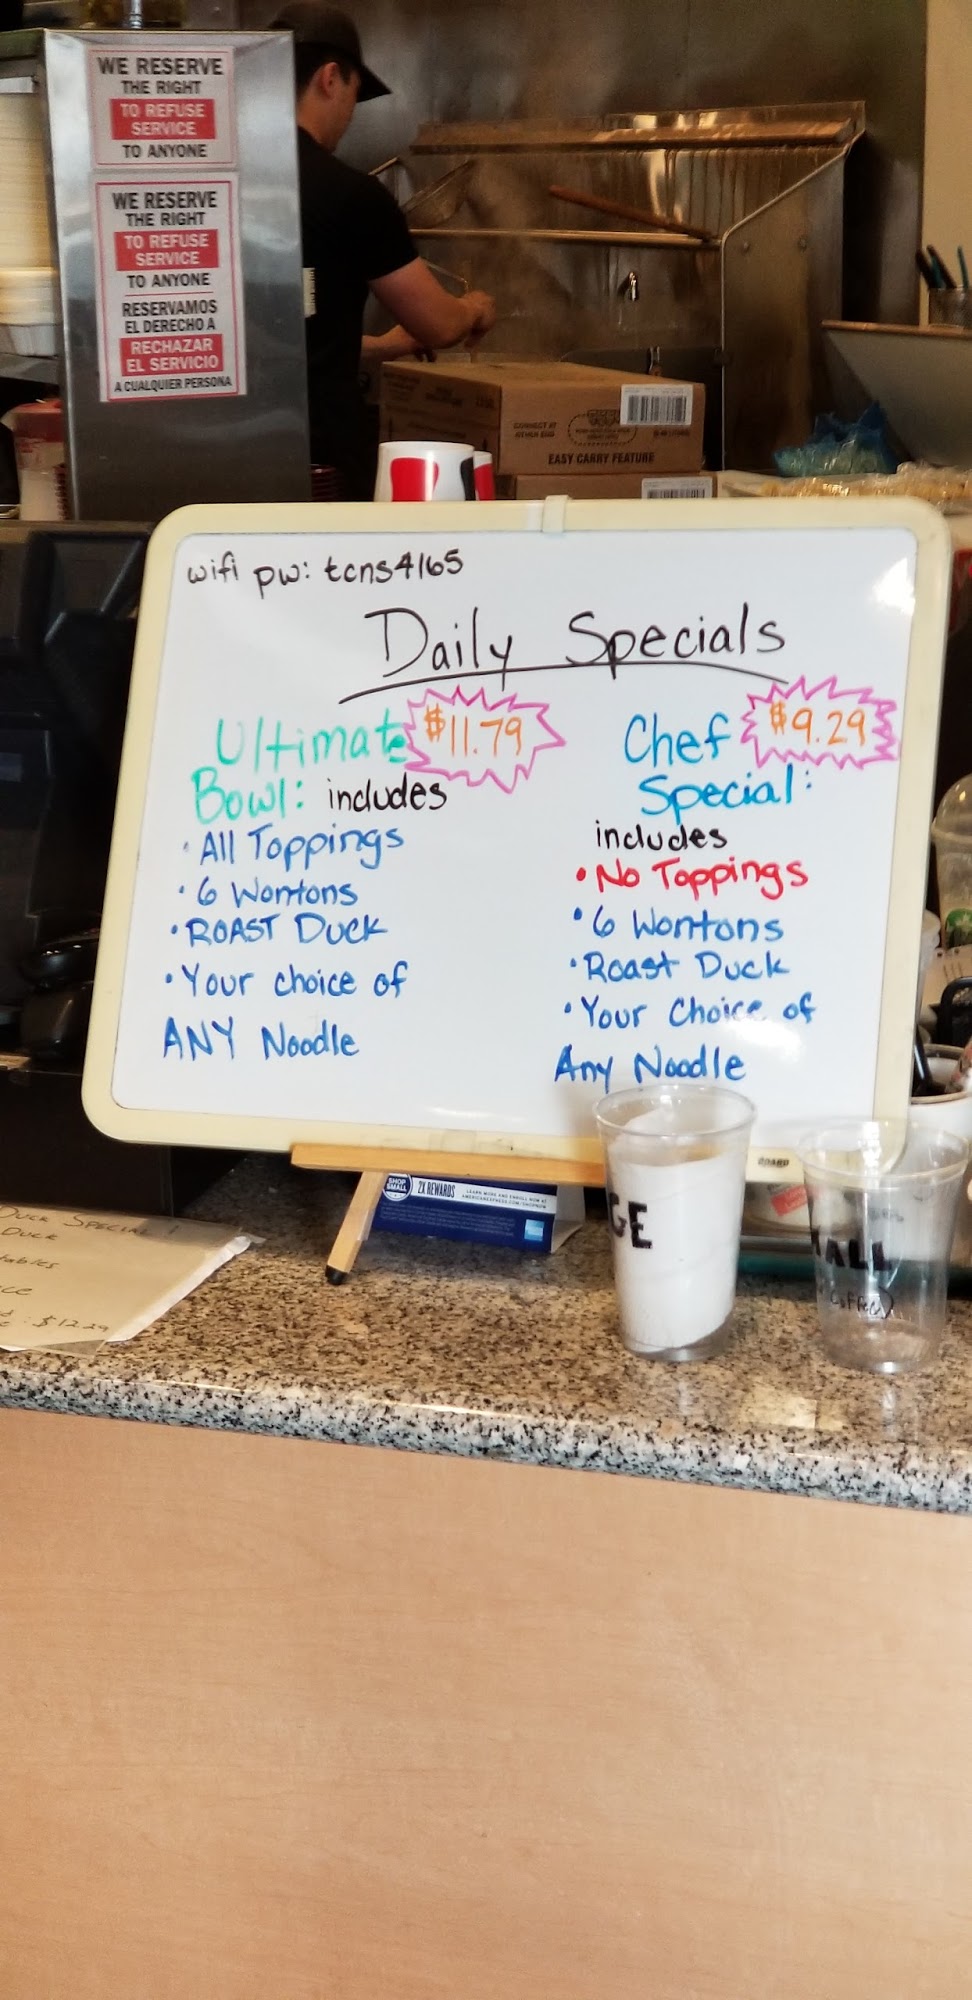 WE RESERVE
THE RIGHT
TO REFUSE
SERVICE
TO ANYONE
WE RESERVE
THE RIGHT
TO REFUSE
SERVICE
TO ANYONE
RESERVAMOS
EL DERECHO A
RECHAZAR
EL SERVICIO
A CUALQUIER PERSONA
CONNECT AT
OTHER END
EASY CARRY FEATURE
wifi pw: tcns4165
Daily Specials
Ultimate $11.79
Bowl: includes
• All Toppings
• 6 Wontons
• ROAST DUCK
• Your choice of
ANY Noodle
Chef $9.29
Special:
includes
• No Toppings
• 6 Wontons
• Roast Duck
• Your Choice of
Any Noodle
BOARD
SHOP
SMALL
2X REWARDS
LEARN MORE AND ENROLL NOW AT
AMERICANEXPRESS.COM/SHOPNOW
GE
ALL
Coffee
Duck Special
Duck
tables
: $12.29